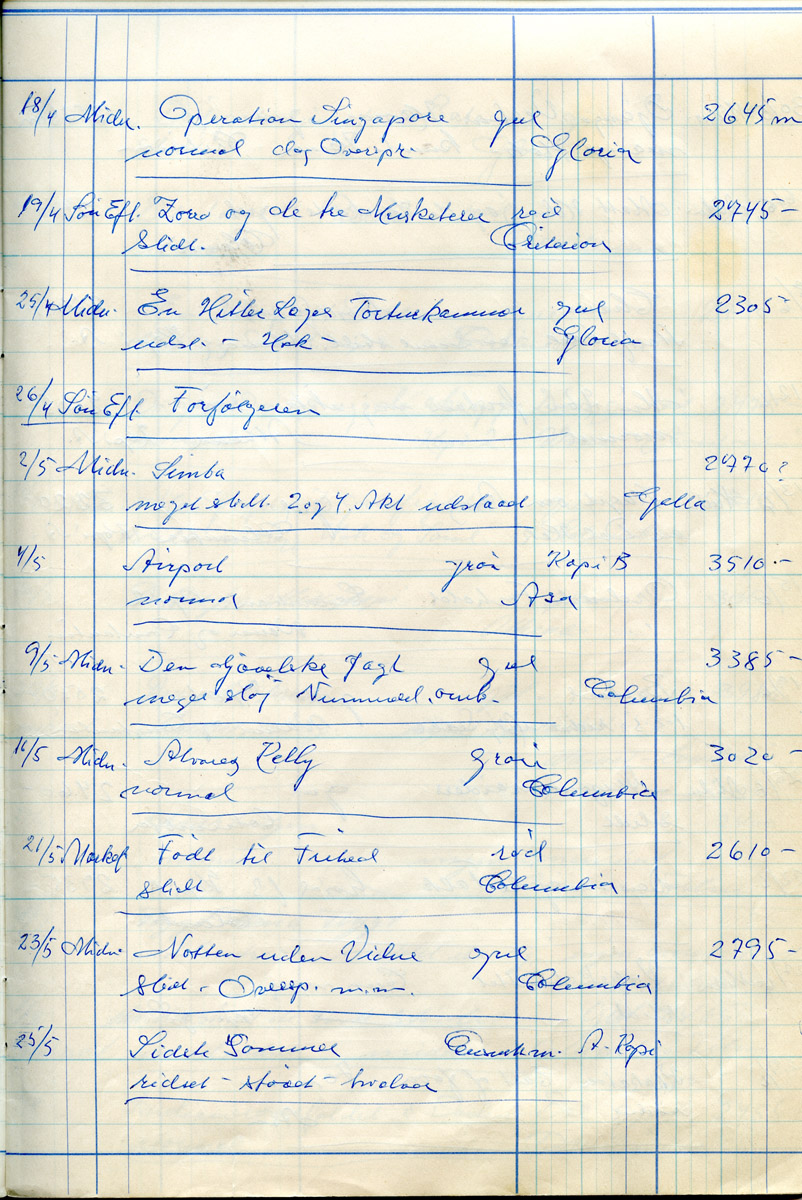 18/4 Midn. Operation Singapore gul 2645 m
normal dog Overspr. Gloria
19/4 Søn Eft. Zorro og de tre Musketerer rød 2745 -
Slidt. Criterion
25/4 Midn. En Hitler Lejrs Torturkammer gul 2305 -
udsl. - Hak - Gloria
26/4 Søn Eft. Forfølgeren
2/5 Midn. Simba 2770 ?
meget slidt. 2 og 4. Akt udslaaed Gella
4/5 Airport grøn Kopi B 3510.-
normal Asa
9/5 Midn. Den djævelske Jagt gul 3385 -
meget støj Nummed. omb. Columbia
11/5 Midn. Alvarez Kelly grøn 3020 -
normal Columbia
21/5 Født til Frihed rød 2610 -
slidt Columbia
23/5 Midn. Natten uden Vidne gul 2795 -
Slidt. Oversp. m.m. Columbia
25/5 Sidste Sommer A-Kopi
ridset - stødt -